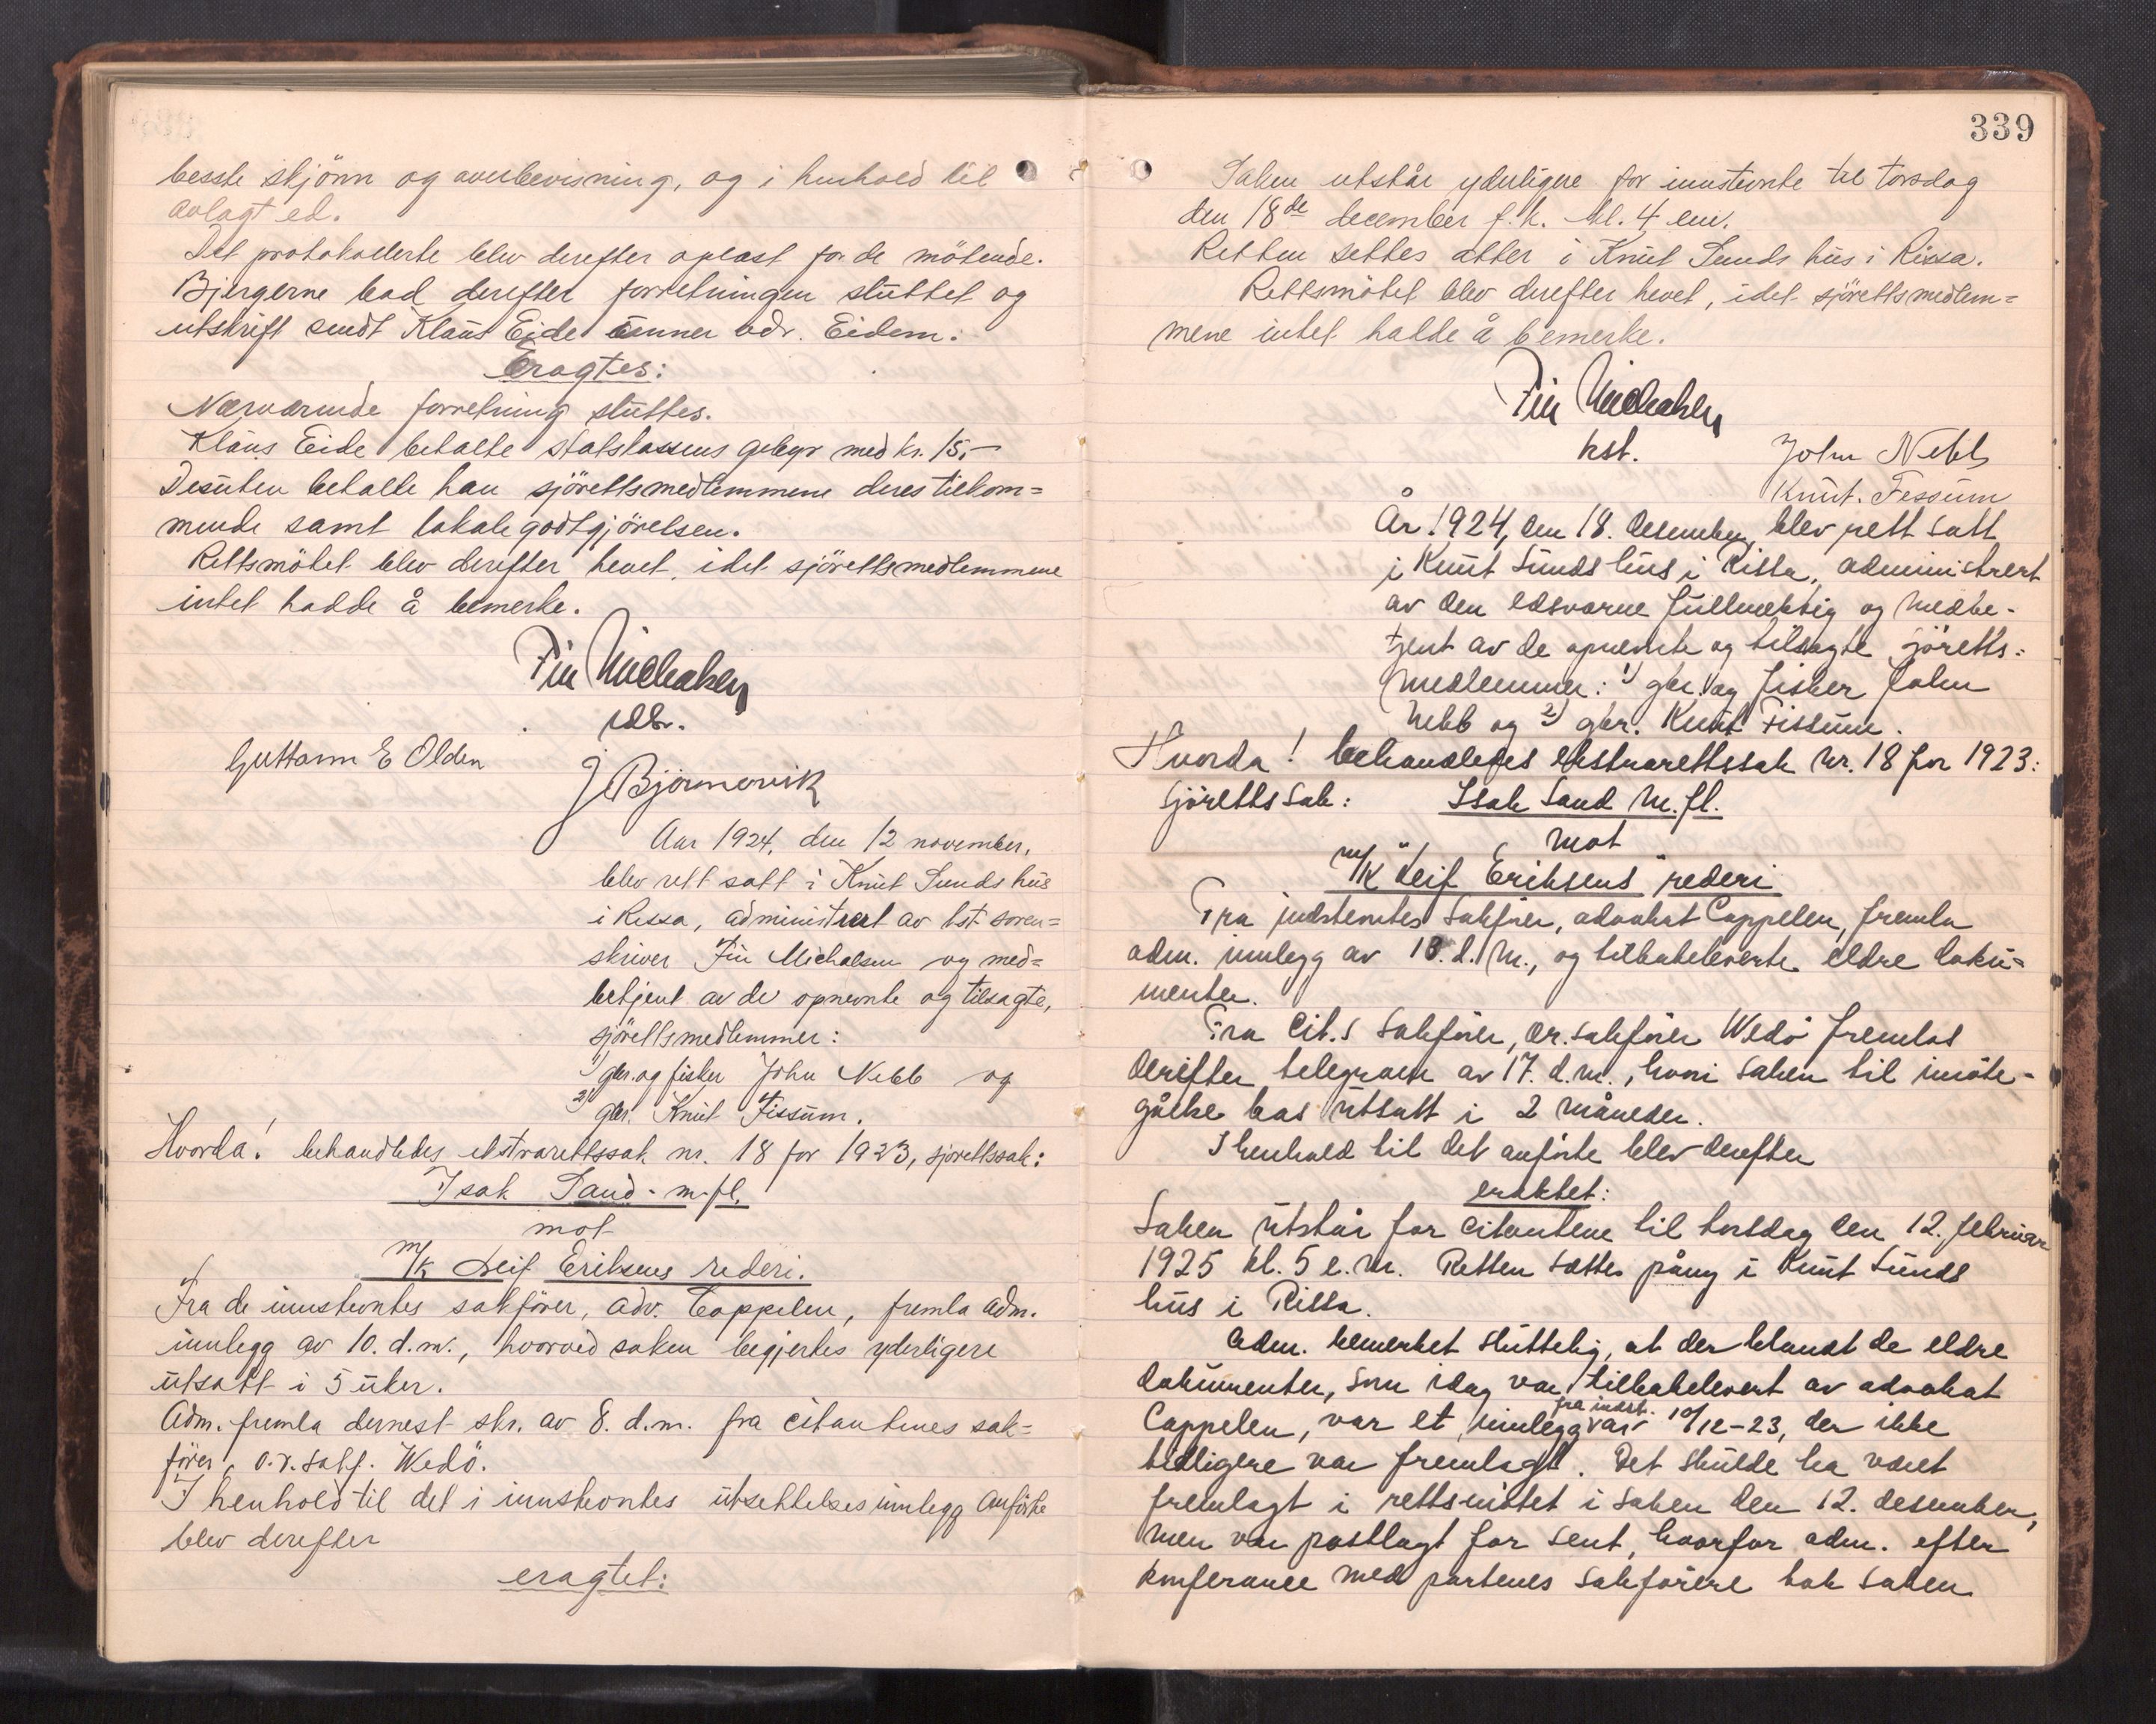 besste skjönn og overbevisning, og i henhold til
avlagt ed.
Det protokollerte blev derefter oplæst for de mötende.
Bjergerne bad derefter forretningen sluttet og
utskrift sendt Klaus Eide under adr. Eidem.
Eragtes:
Nærværende forretning sluttes.
Klaus Eide betalte statskassens gebyr med kr. 15,-
Desuten betalte han sjörettsmedlemmene deres tilkom=
mende samt lokalegodtgjörelsen.
Rettsmötet blev derefter hevet, idet sjörettsmedlemmene
intet hadde å bemerke.
Fin Michalsen
Guttorm E Olden
J. Björnervik
Aar 1924, den 12 november,
blev rett satt i Knut Sunds hus
i Rissa, administrert av kst. soren=
skriver Fin Michalsen og med=
betjent av de opnevnte og tilsagte,
sjörettsmedlemmer:
1) gbr. og fisker John Nebb og
2) gbr. Knut Fissum.
Hvorda! behandledes ekstrarettssak nr. 18 for 1923, sjorettssak:
Isak Sand m.fl.
mot
m/k Leif Eriksens rederi.
Fra de innstevntes sakförer, adv. Cappelen, fremla adm.
innlegg av 10. d.m., hvorved saken begjertes yderligere
utsatt i 5 uker.
Adm. fremla dernest skr. av 8. d.m. fra citantenes sak=
förer, o.r.sakf. Wedö.
I henhold til det i innstevntes utsettelsesinnlegg anförte
blev derefter
eragtet:
339
Saken utstår yderligere for innstevnte til torsdag
den 18de december f.k. kl. 4 em.
Retten settes atter i Knut Sunds hus i Rissa.
Rettsmötet blev derefter hevet, idet sjörettsmedlem=
mene intet hadde å bemerke.
Fin Michalsen
kst.
John Nebb
Knut. Fessum
År 1924, den 18. desember, blev rett satt
i Knut Sunds hus i Rissa, administrert
av den edsvorne fullmektig og medbe-
tjent av de opnevnte og tilsagte sjöretts-
medlemmer: 1) gbr. og fisker John
Nebb og 2) gbr. Knut Fissum.
Hvorda! behandledes ekstrarettssak nr. 18 for 1923:
sjörettssak: Isak Sand m.fl.
mot
m/k "Leif Eriksens" rederi
Fra indstevntes sakförer, advokat Cappelen, fremla
adm. innlegg av 13. d.m., og tilbakeleverte eldre doku=
menter.
Fra cit.s sakförer, or.sakförer Wedö fremlas
derefter telegram av 17. d.m., hvori saken til imöte-
gåelse bas utsatt i 2 måneder.
I henhold til det anförte blev derefter
eraktet:
Saken utstår for citantene til torsdag den 12. februar
1925 kl. 5 e.m. Retten sættes påny i Knut Sunds
hus i Rissa.
Adm. bemerket sluttelig, at der blandt de eldre
dokumenter, som idag var tilbakelevert av advokat
Cappelen, var et innlegg fra indst. av 10/12-23, der ikke
tidligere var fremlagt. Det skulde ha været
fremlagt i rettsmötet i saken den 12. desember,
men var postlagt for sent, hvorfor adm. efter
konferanse med partenes sakförere tok saken